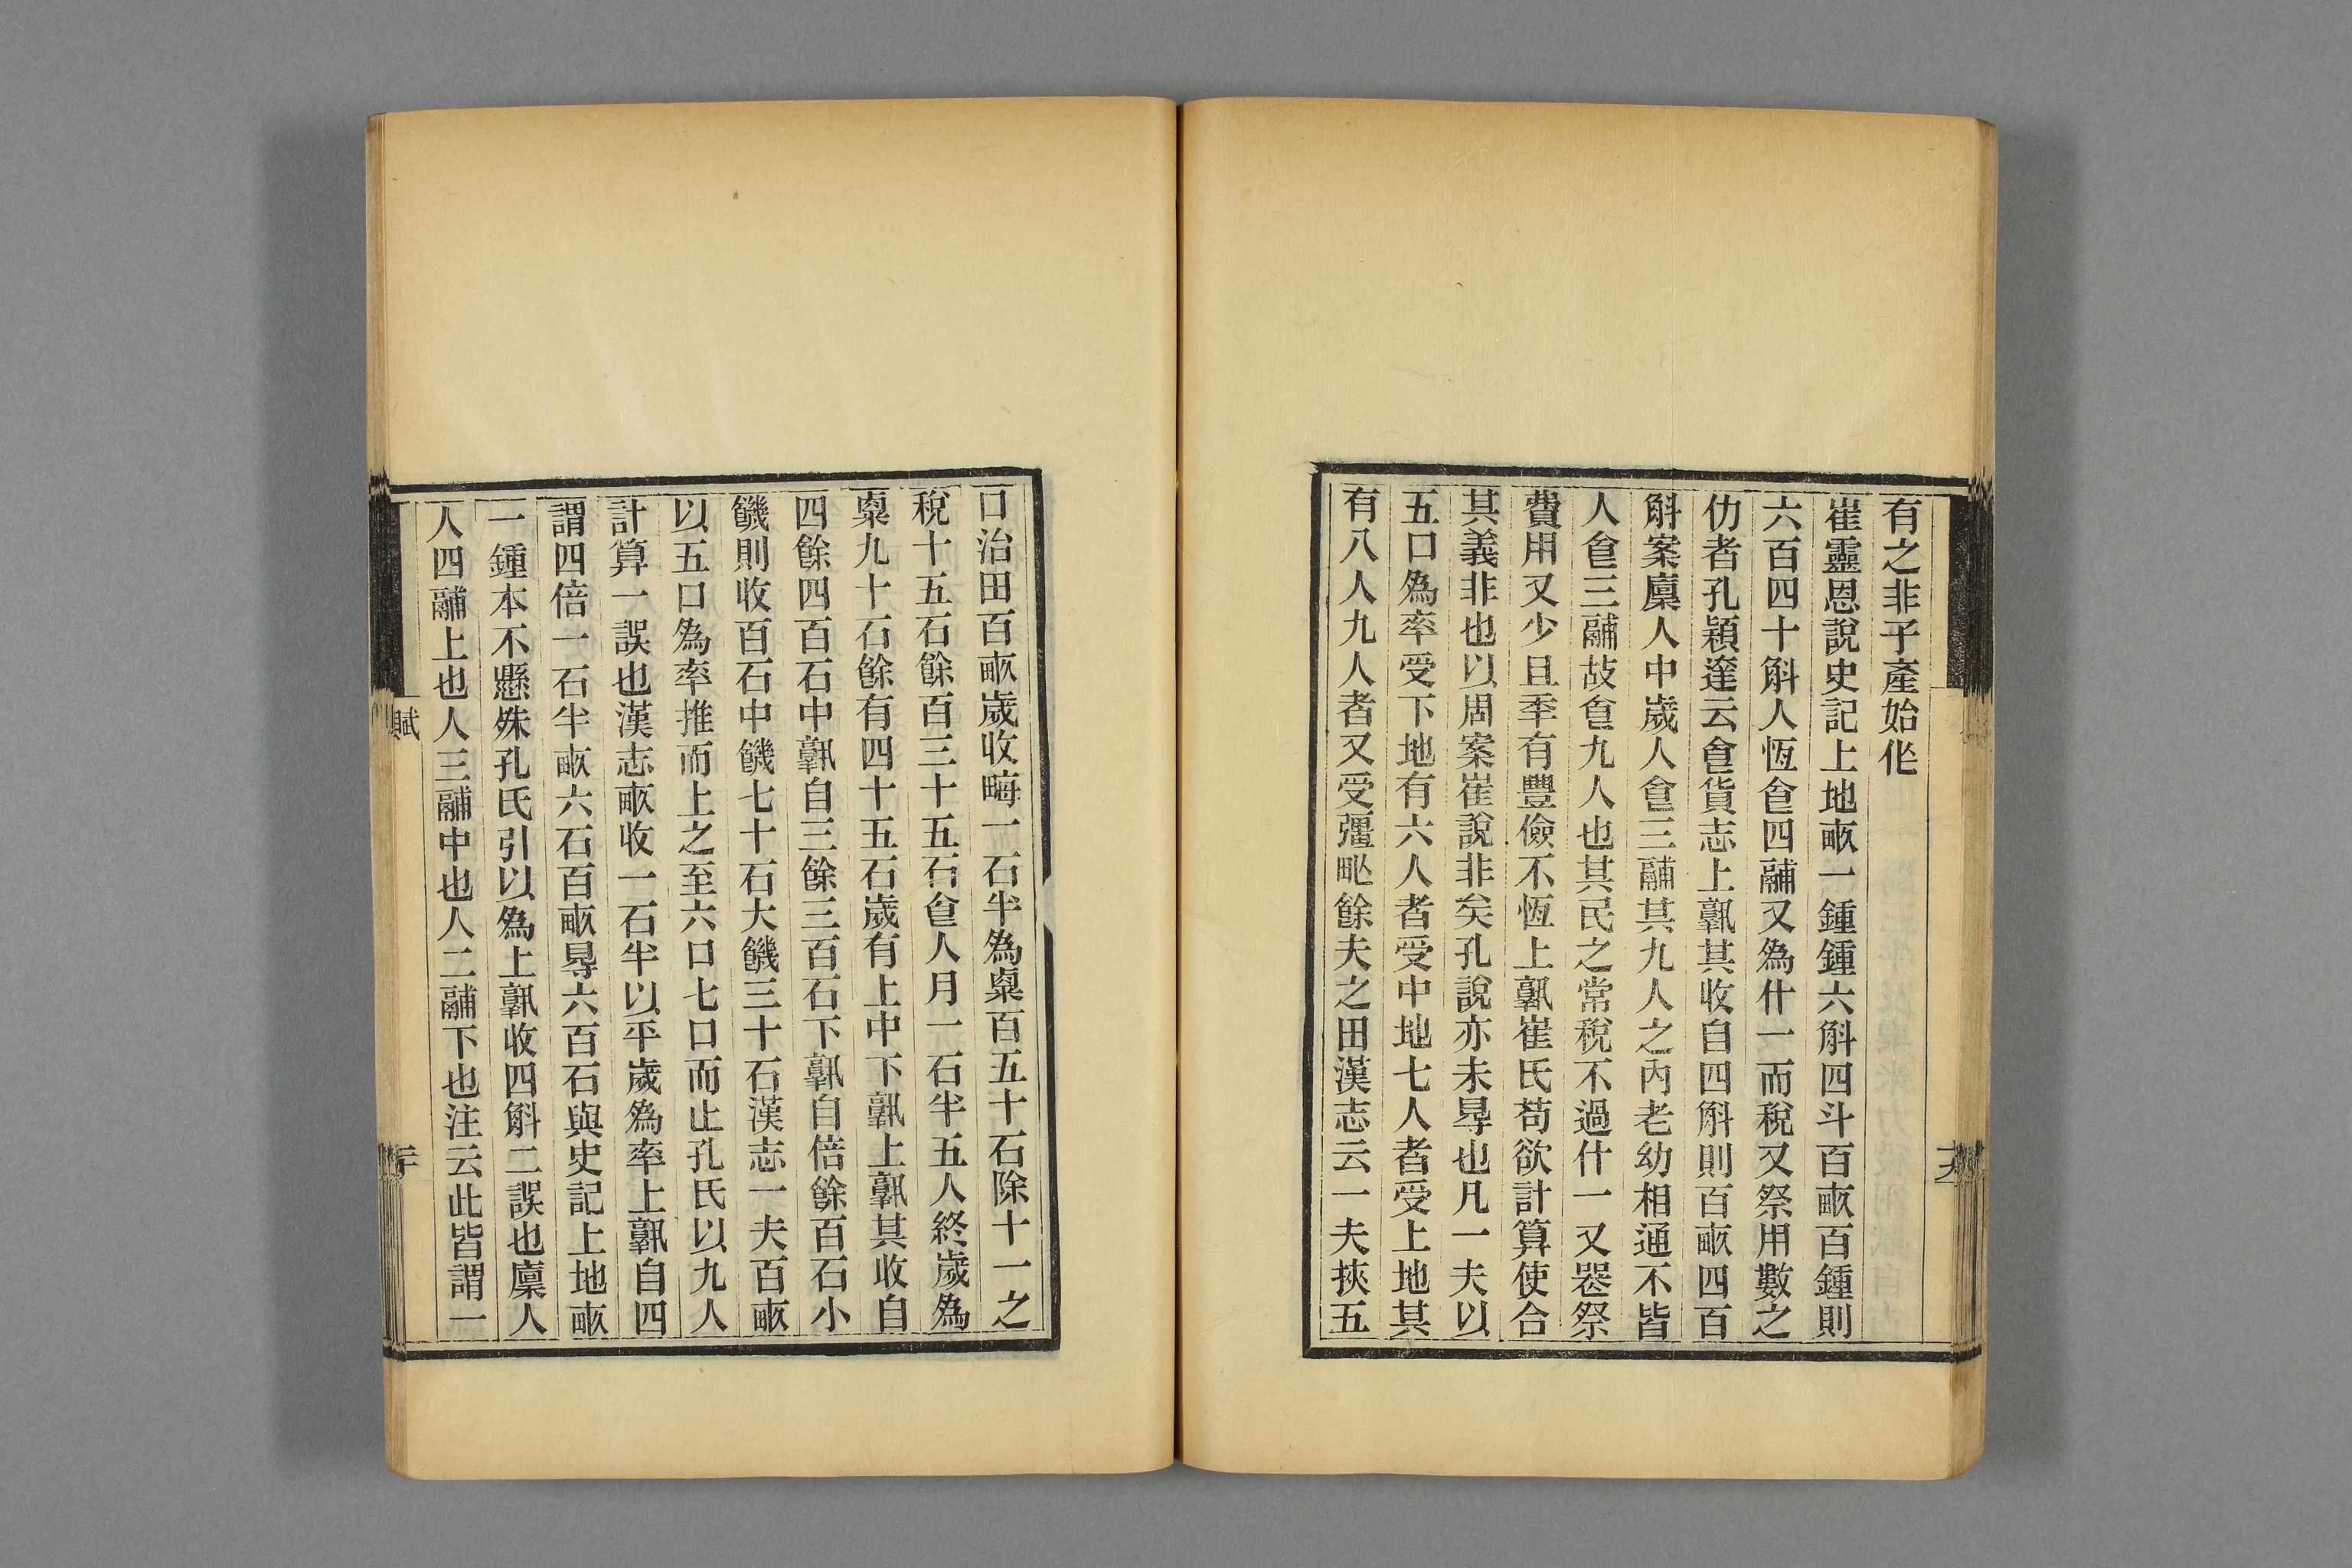 有之非子產始㐲
崔靈恩說史記上地畞一鍾鍾六斛四斗百畞百鍾則
六百四十斛人恆食四鬴又為什一而稅又祭用數之
仂者孔穎達云食貨志上孰其收自四斛則百畞四百
斛案廩人中歲人食三鬴其九人之內老幼相通不皆
人食三鬴故食九人也其民之常稅不過什一又器祭
費用又少且秊有豐儉不恆上孰崔氏苟欲計算使合
其義非也以周案崔說非矣孔說亦未㝵也凡一夫以
五口為率受下地有六人者受中地七人者受上地其
有八人九人者又受彊㽗餘夫之田漢志云一夫挾五
口治田百畞歲收畮一石半為粟百五十石除十一之
稅十五石餘百三十五石食人月一石半五人終歲為
粟九十石餘有四十五石歲有上中下孰上孰其收自
四餘四百石中孰自三餘三百石下孰自倍餘百石小
饑則收百石中饑七十石大饑三十石漢志一夫百畞
以五口為率推而上之至六口七口而止孔氏以九人
計算一誤也漢志畞收一石半以平歲為率上孰自四
謂四倍一石半畞六石百畞㝵六百石與史記上地畞
一鍾本不懸殊孔氏引以為上孰收四斛二誤也廩人
人四鬴上也人三鬴中也人二鬴下也注云此皆謂一
賦